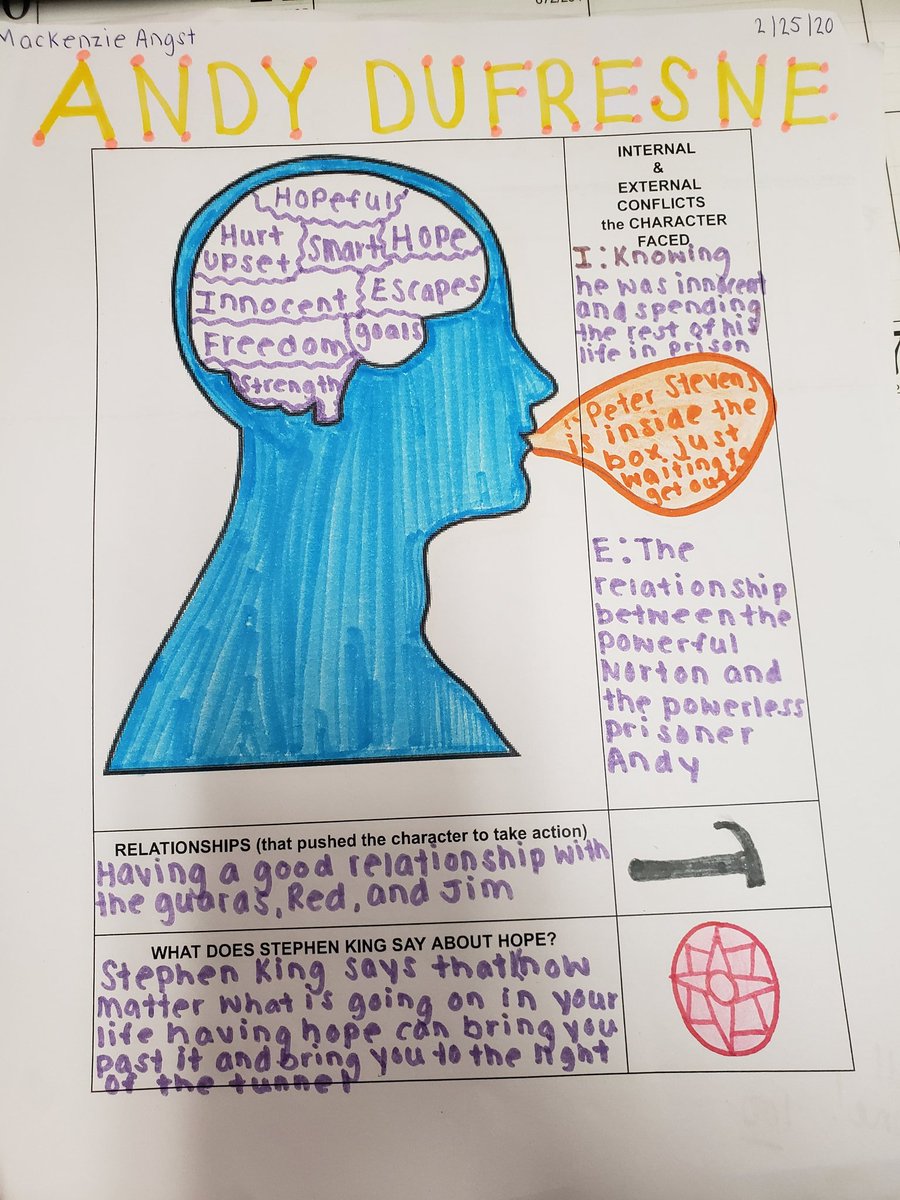 Mackenzie Angst
2/25/20
ANDY DUFRESNE
Hopeful
Hurt
upset
Smart
Hope
Innocent
Escapes
Freedom
goals
Strength
INTERNAL
&
EXTERNAL
CONFLICTS
the CHARACTER
FACED
I: Knowing
he was innocent
and spending
the rest of his
life in prison
"Peter Stevens
is inside the
box just
waiting to
get out"
E: The
relationship
between the
powerful
Norton and
the powerless
prisoner
Andy
RELATIONSHIPS (that pushed the character to take action)
Having a good relationship with
the guards, Red, and Jim
WHAT DOES STEPHEN KING SAY ABOUT HOPE?
Stephen King says that know
matter what is going on in your
life having hope can bring you
past it and bring you to the
of the tunnel